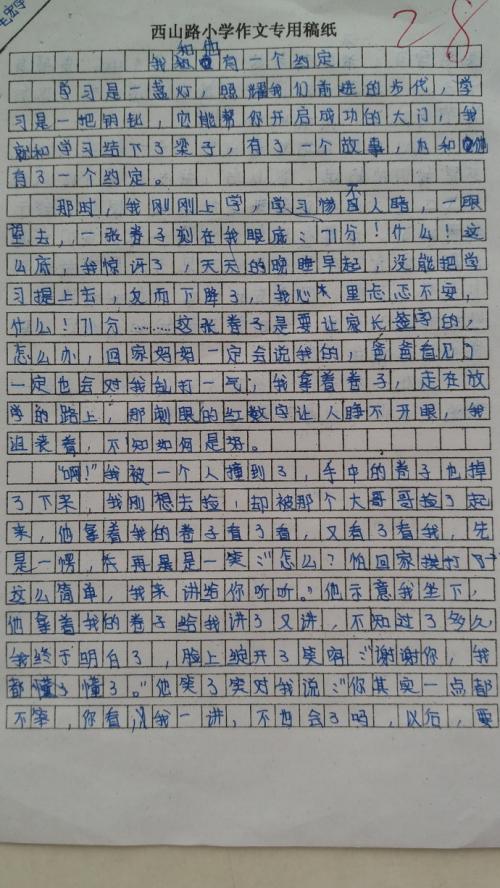 28
西山路小学作文专用稿纸
我和他有一个约定
学习是一盏灯，照耀我们前进的步伐，学
习是一把钥匙，它能帮你开启成功的大门，我
就和学习结下了梁子，有了一个故事，也和他
有了一个约定。
那时，我刚刚上学，学习惨不人睹，一眼
望去，一张卷子刻在我眼底：71分！什么！这
么底，我惊讶了，天天的晚睡早起，没能把学
习提上去，反而下降了，我心里忐忑不安，
什么！71分……这张卷子是要让家长签字的，
怎么办，回家妈妈一定会说我的，爸爸看见了
一定也会对我乱打一气，我拿着卷子，走在放
学的路上，那刺眼的红数字让人睁不开眼，我
沮丧着，不知如何是好。
“啊！”我被一个人撞到了，手中的卷子也掉
了下来，我刚想去捡，却被那个大哥哥捡了起
来，他拿着我的卷子看了看，又看了看我，先
是一愣，再是一笑：“怎么？怕回家挨打
这么简单，我来讲给你听听。”他示意我坐下，
他拿着我的卷子给我讲了又讲，不知过了多久，
我终于明白了，脸上绽开了笑容：“谢谢你，我
都懂了懂了。”他笑了笑对我说：“你其实一点都
不笨，你看，我一讲，不也会了吗，以后，要